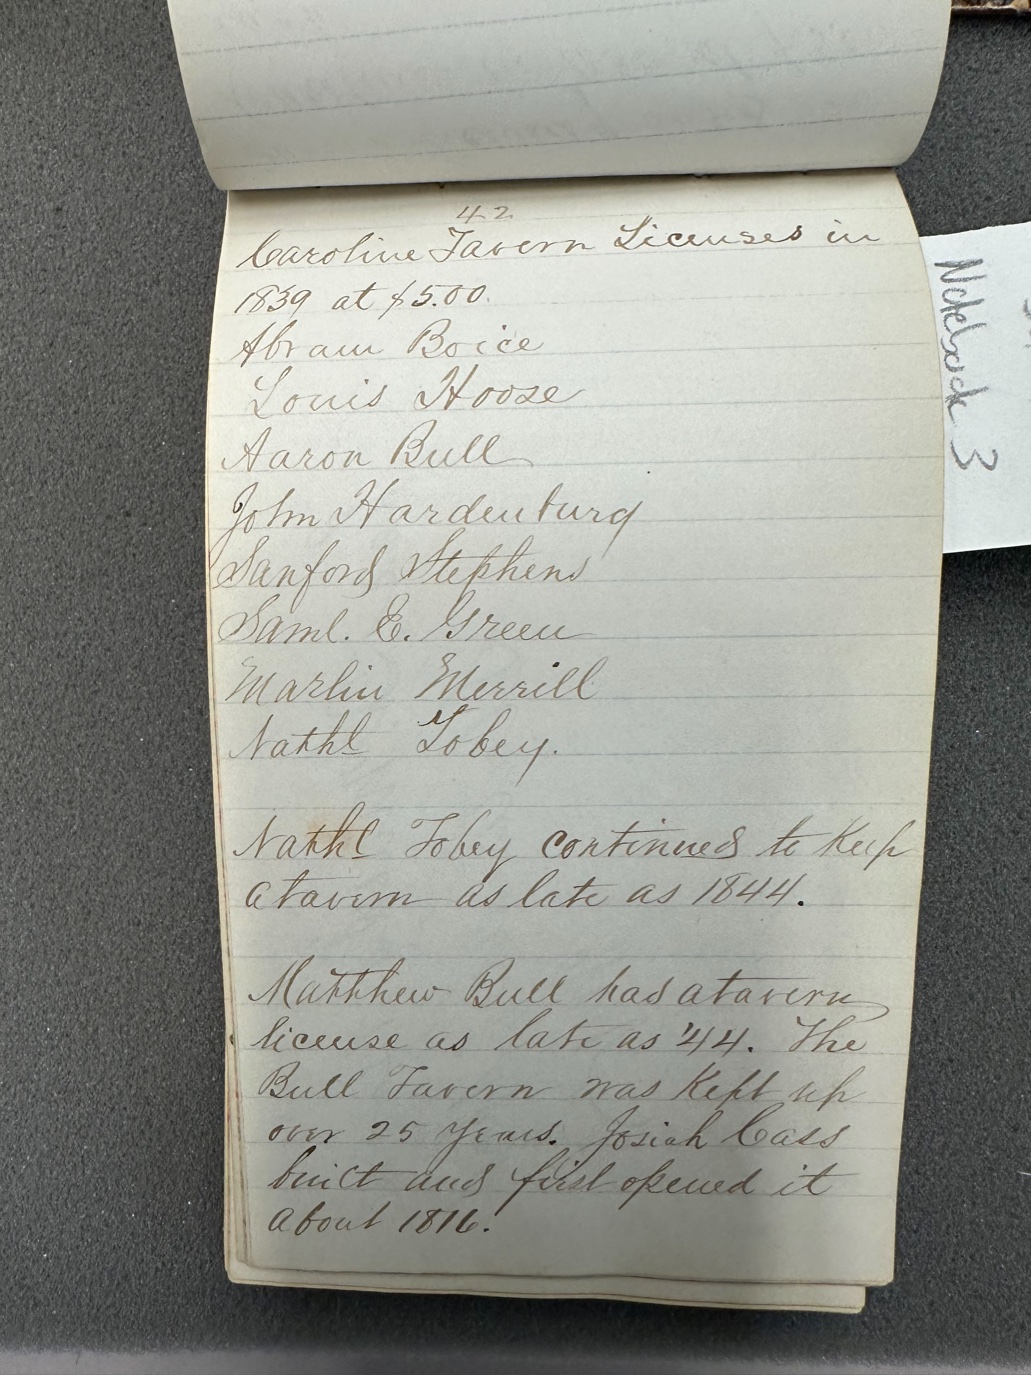 42
Caroline Tavern Licenses in
1839 at $5.00.
Abram Boice
Louis Hoose
Aaron Bull
John Hardenburg
Sanford Stephens
Saml. E. Green
Marlin Merrill
Nathl Tobey.
Nathl Tobey continued to Keep
a tavern as late as 1844.
Matthew Bull had a tavern
license as late as '44. The
Bull Tavern was Kept up
over 25 years. Josiah Cass
built and first opened it
about 1816.
Notebook 3